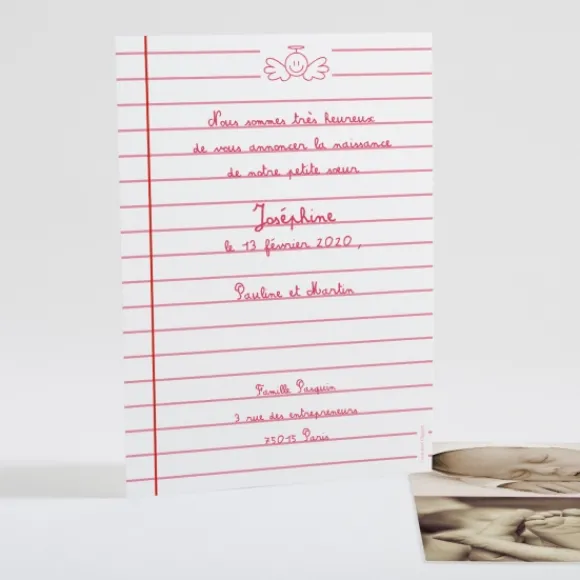 Nous sommes très heureux
de vous annoncer la naissance
de notre petite sœur
Joséphine
le 13 février 2020,
Pauline et Martin
Famille Parquin
3 rue des entrepreneurs
75015 Paris